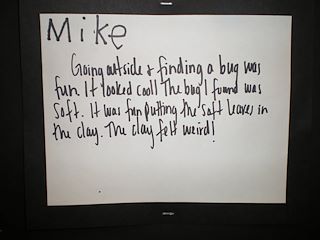 Mike
Going outside & finding a bug was
fun. It looked cool! The bug I found was
soft. It was fun putting the soft leaves in
the clay. The clay felt weird!